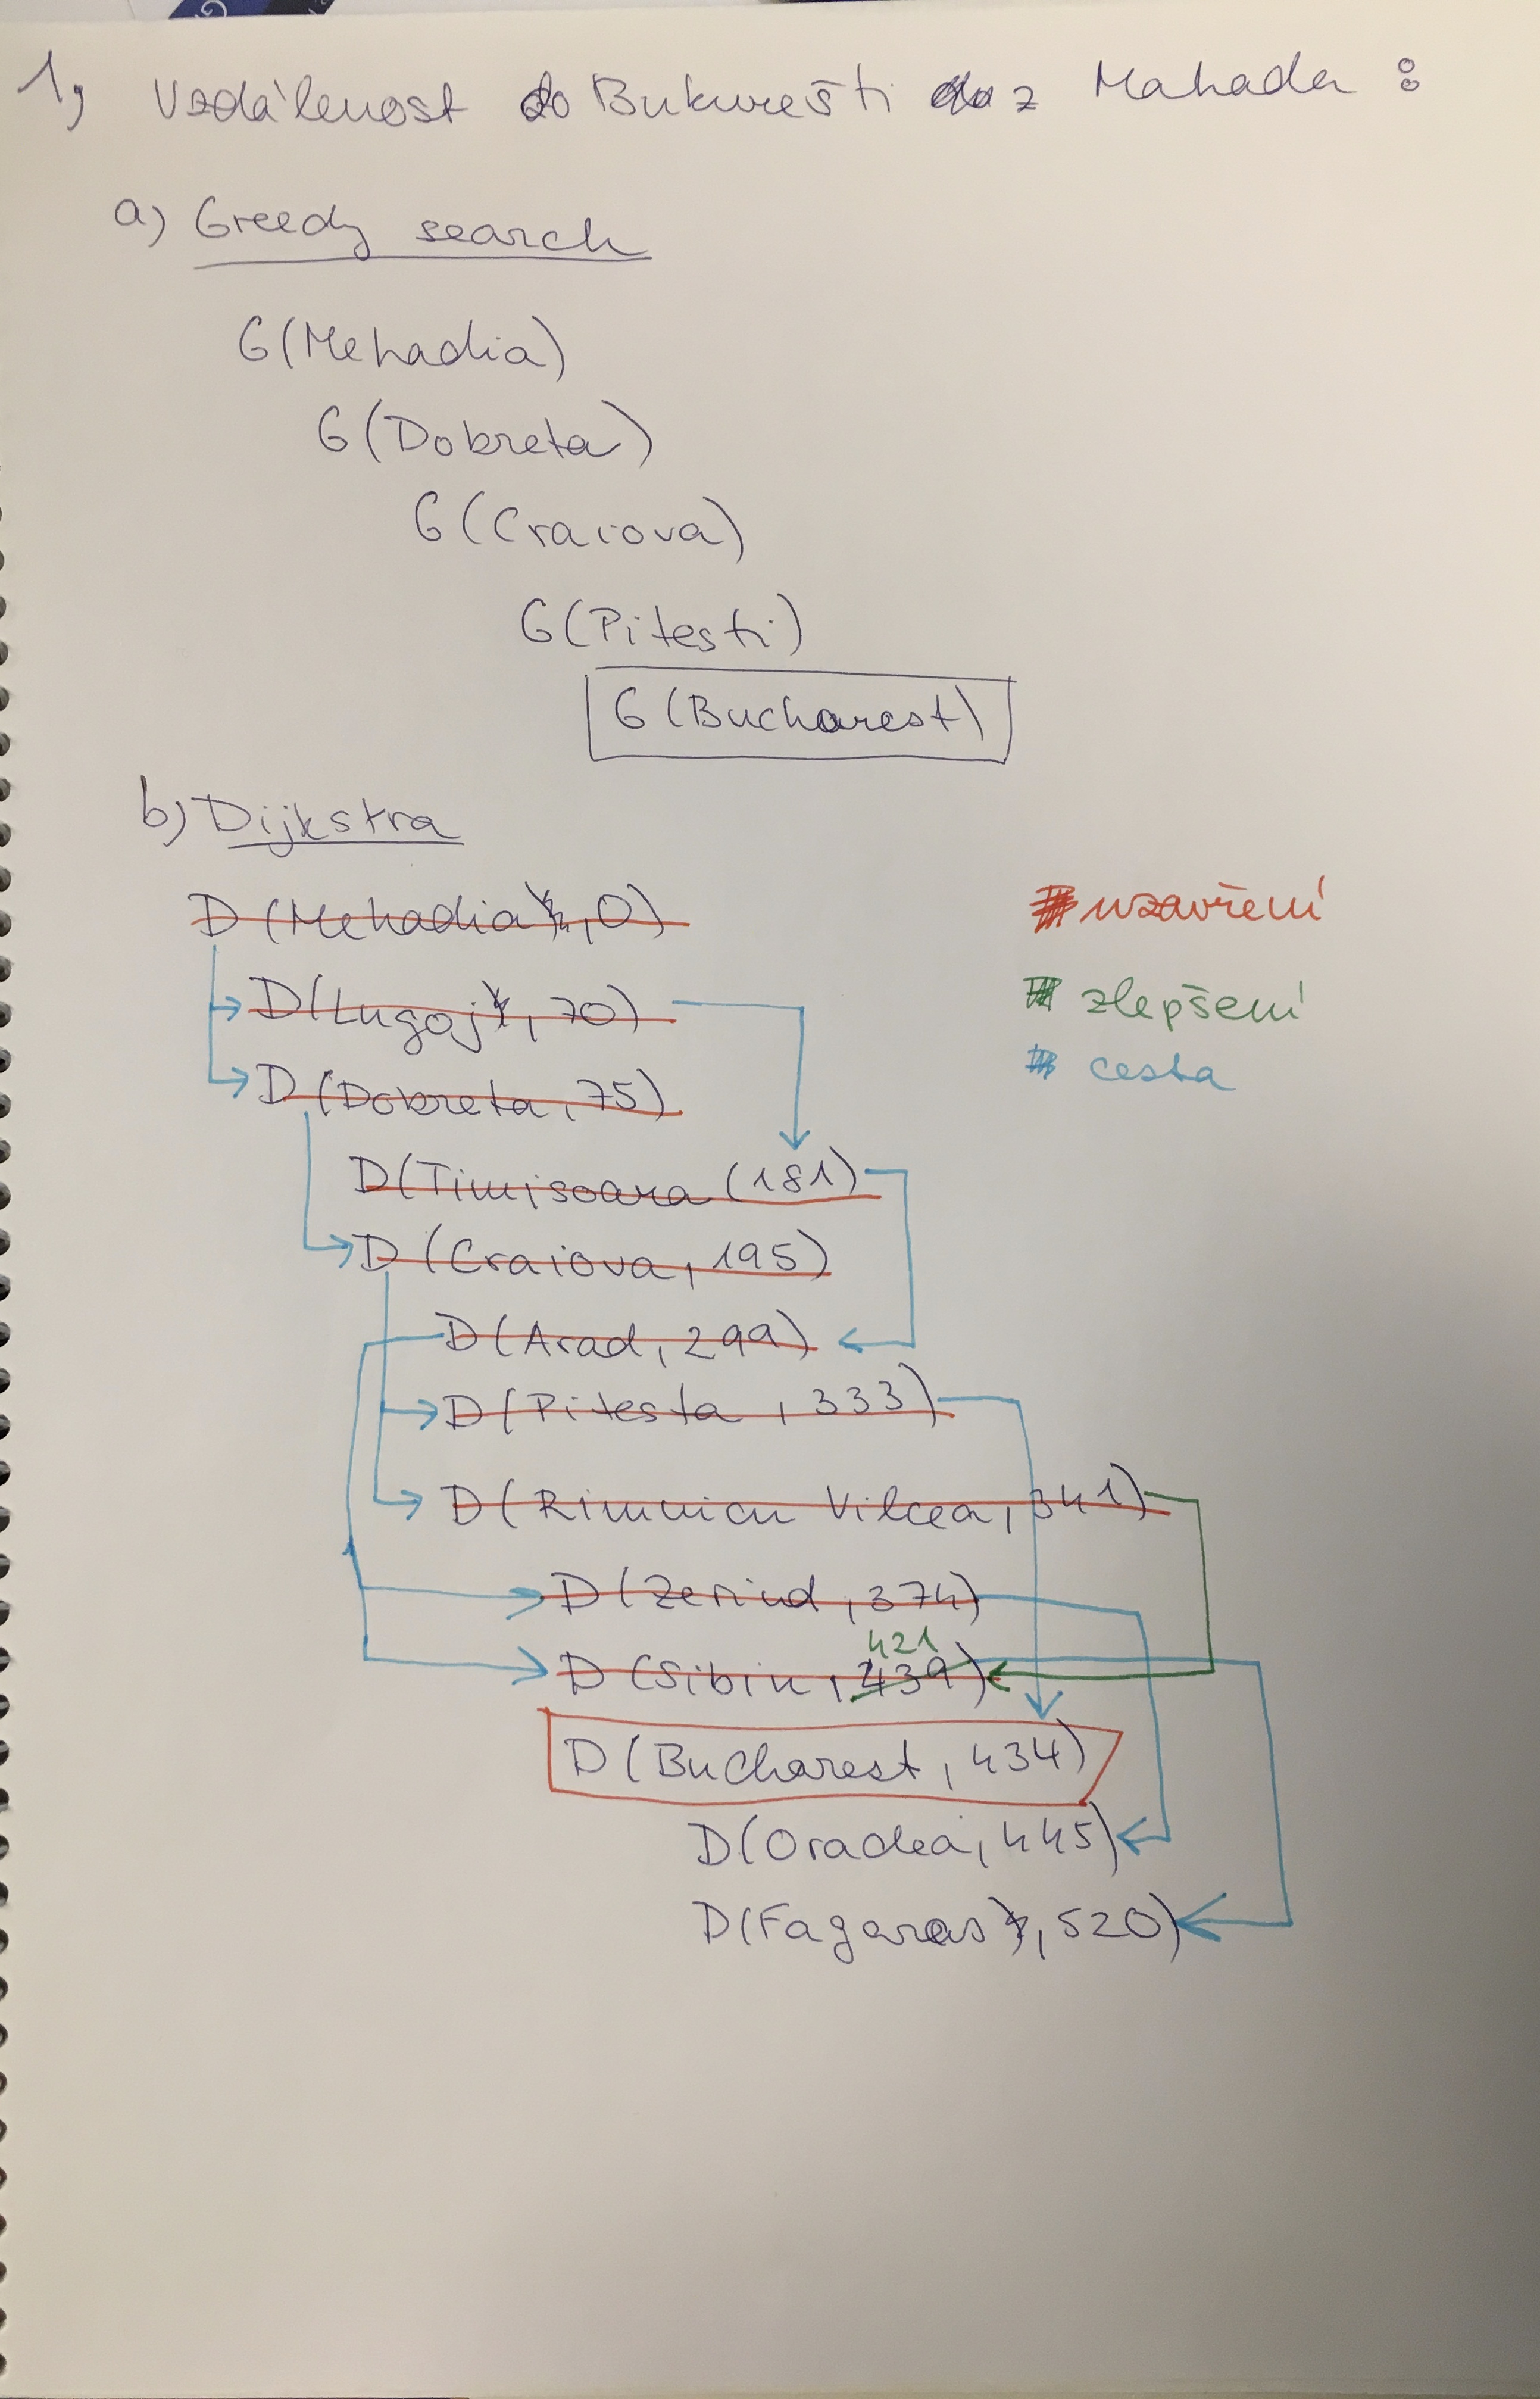 1, Vzdálenost do Bukurešti z Mahada :
a) Greedy search
G(Mehadia)
G(Dobreta)
G(Craiova)
G(Pitesti)
G(Bucharest)
b) Dijkstra
D(Mehadia, 0)
uzavření
D(Lugoj, 70)
zlepšení
D(Dobreta, 75)
cesta
D(Timisoara (181)
D(Craiova, 195)
D(Arad, 299)
D(Pitesta, 333)
D(Rimnicu Vilcea, 341)
D(Zerind, 374)
421
D(Sibiu, 439)
D(Bucharest, 434)
D(Oradea, 445)
D(Fagaras, 520)